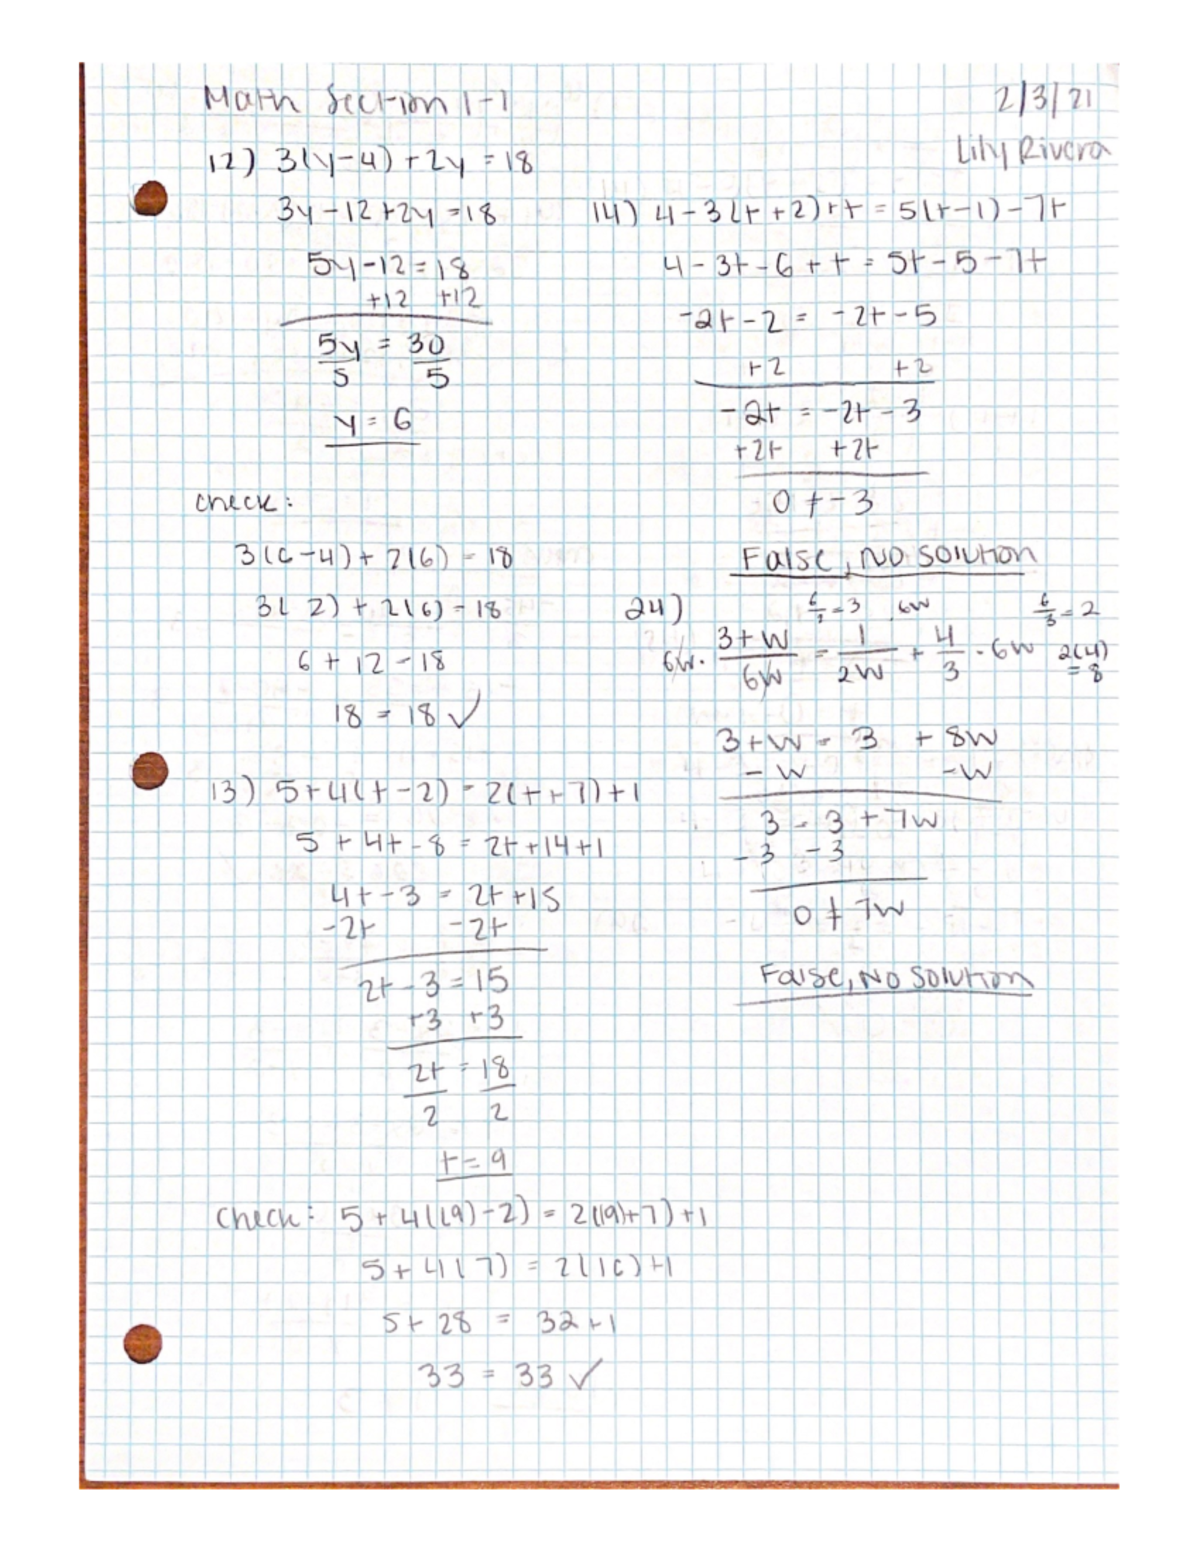 Math Section 1-1
2/3/21
Lily Rivera
12) 3(y-4)+2y=18
3y-12+2y=18
5y-12=18
+12 +12
5y = 30
5 5
y = 6
check:
3(6-4)+2(6)=18
3(2)+2(6)=18
6+12=18
18=18✓
13) 5+4(t-2)=2(t+7)+1
5+4t-8=2t+14+1
4t-3=2t+15
-2t -2t
2t-3=15
+3 +3
2t=18
2 2
t=9
Check: 5+4((9)-2)=2((9)+7)+1
5+4(7)=2(16)+1
5+28=32+1
33=33✓
14) 4-3(t+2)+t=5(t-1)-7t
4-3t-6+t=5t-5-7t
-2t-2=-2t-5
+2 +2
-2t=-2t-3
+2t +2t
0≠-3
False, No solution
24) =3 6W 6/3=2
6W· 3+W/6W = 1/2W + 4/3 ·6W 2(4)
=8
3+W=3+8W
-W -W
3=3+7W
-3 -3
0≠7W
False, No Solution